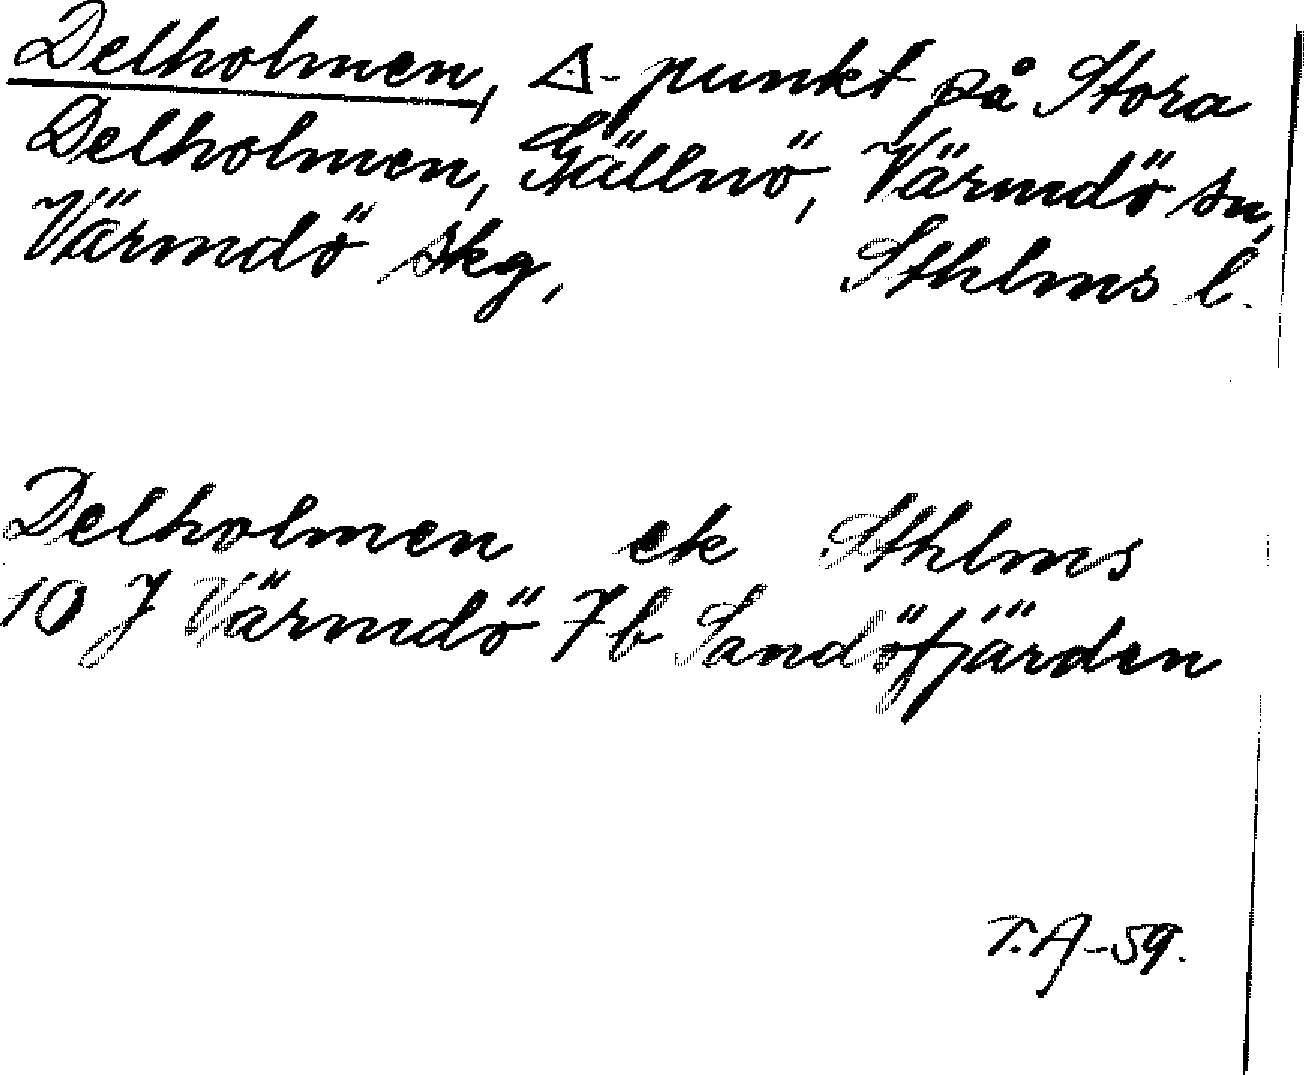 Delholmen, △-punkt på Stora
Delholmen, Gällnö, Värmdö sn,
Värmdö skg, Sthlms l.
Delholmen ek Sthlms
10 J Värmdö 7b Sandöfjärden
T.A-59.